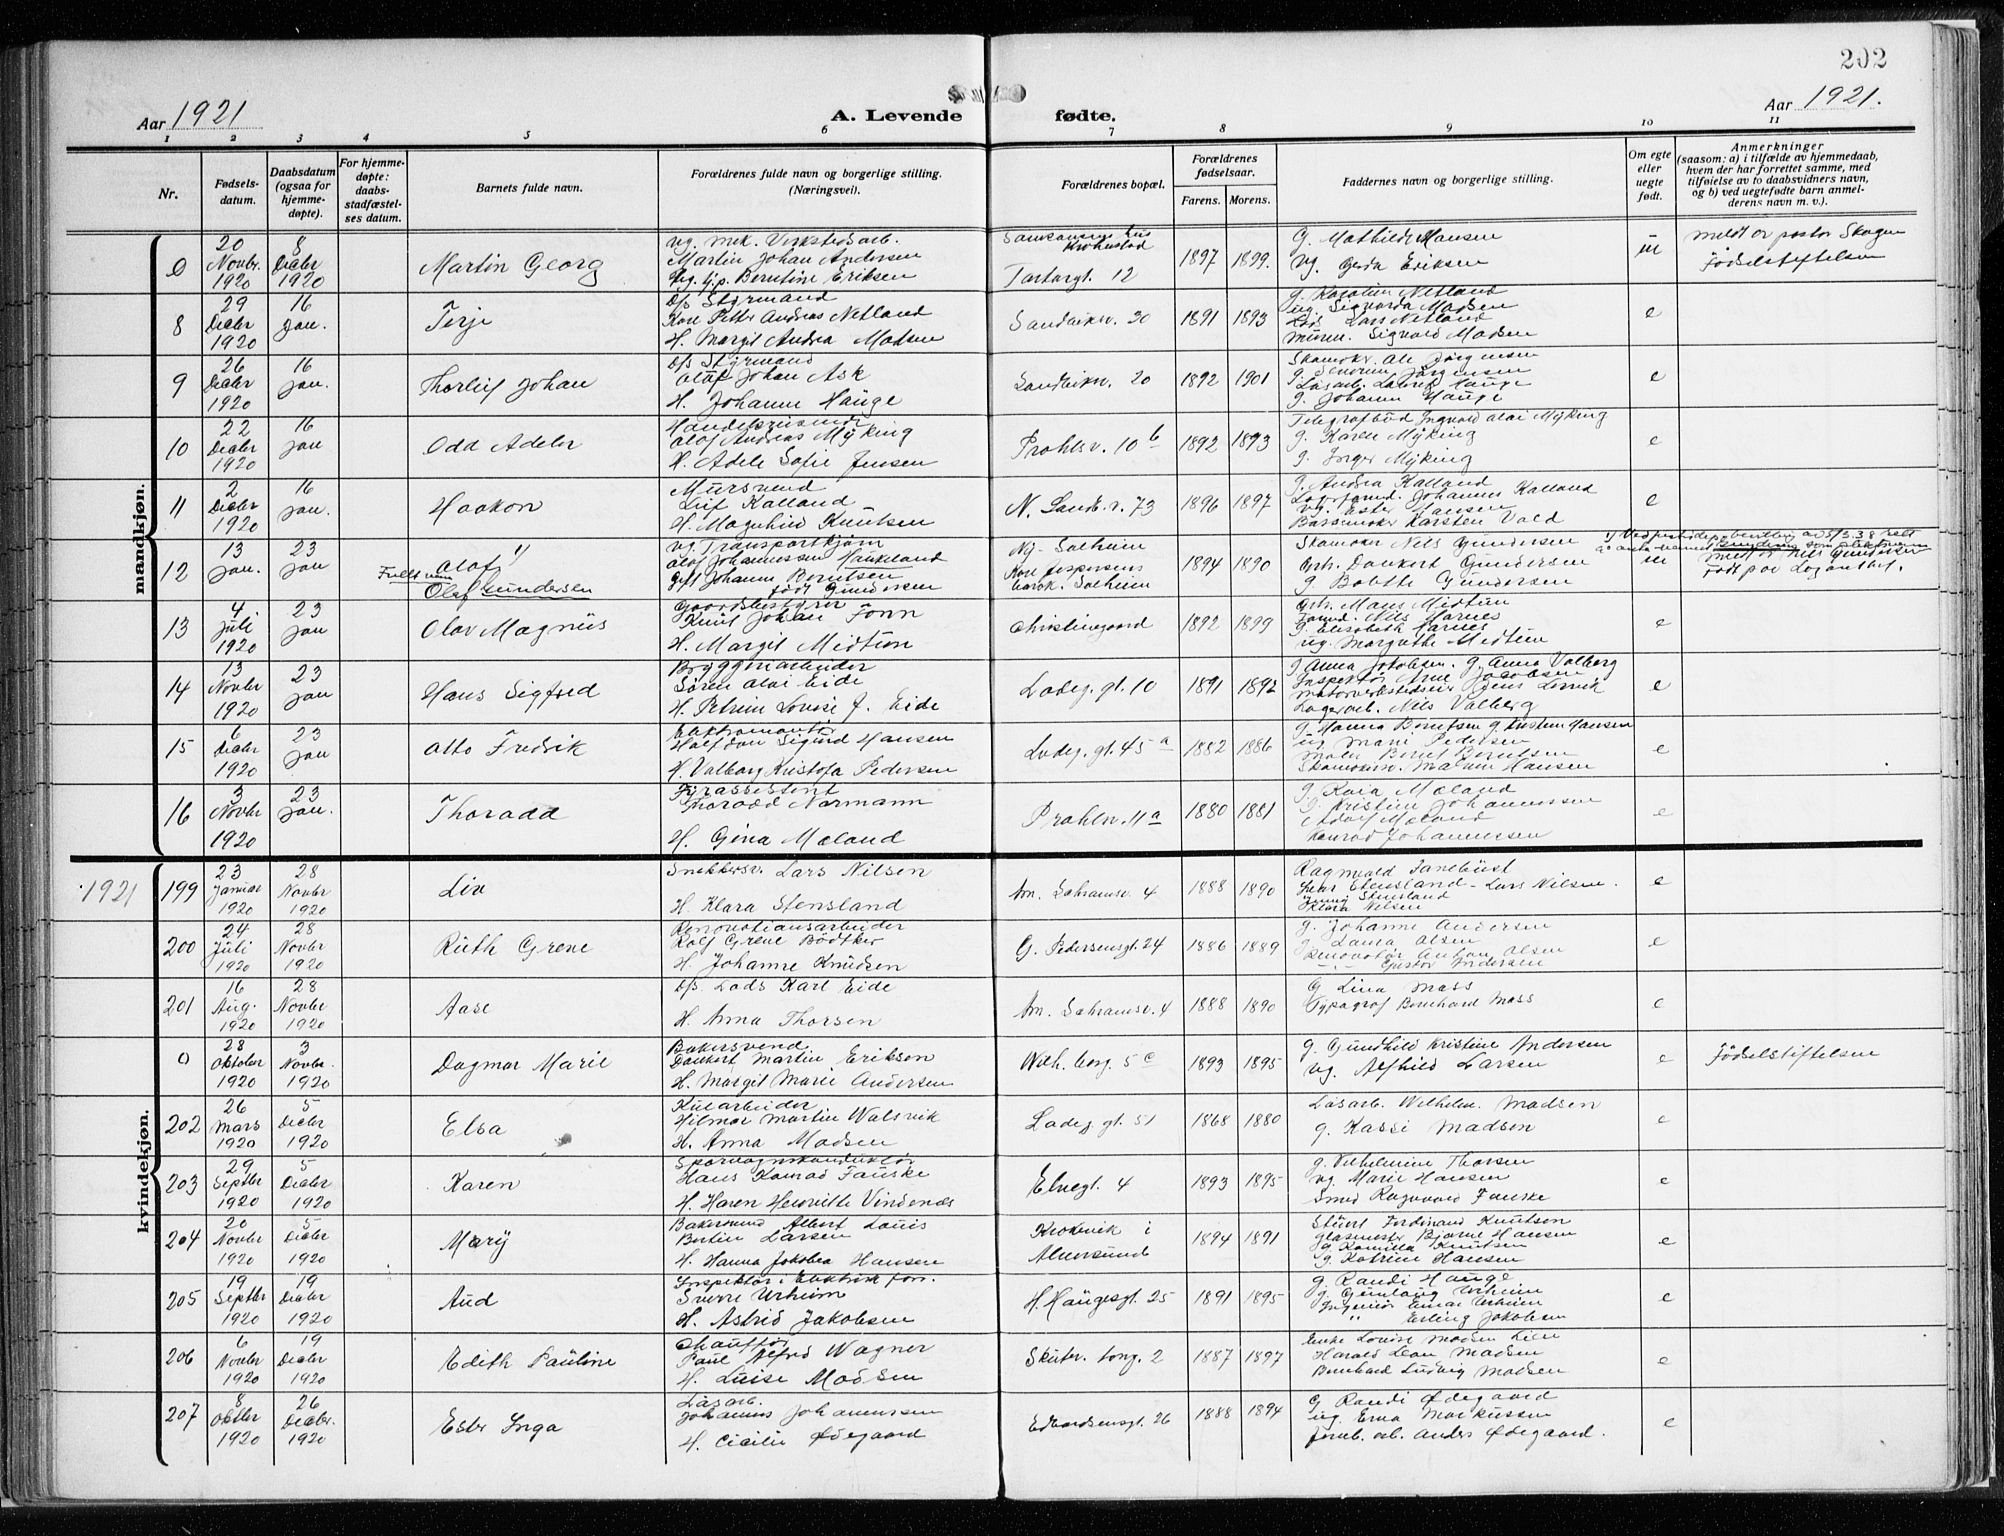 202
Aar 1921
A. Levende fødte.
Aar 1921.
1 2 3 4 5 6 7 8 9 10 11
Nr.
Fødsels-
datum.
Daabsdatum
(ogsaa for
hjemme-
døpte).
For hjemme-
døpte:
daabs-
stadfæstel-
ses datum.
Barnets fulde navn.
Forældrenes fulde navn og borgerlige stilling.
(Næringsvei).
Forældrenes bopæl.
Forældrenes
fødselsaar.
Farens. Morens.
Faddernes navn og borgerlige stilling.
Om egte
eller
uegte
født.
Anmerkninger
(saasom: a) i tilfælde av hjemmedaab,
hvem der har forrettet samme, med
tilføielse av to daabsvidners navn,
og b) ved uegtefødte barn anmel-
derens navn m. v.).
mandkjøn.
0
20 Novbr. 1920
8 Decbr 1920
Martin Georg
ug. mek. Verkstedsarb.
Martin Johan Andersen
Pig. Berntine Eriksen
Tartargt. 12
1897 1899.
g. Mathilde Hansen
ug. Gerda Eriksen
ue
meldt av pastor Skagen
Fødselstiftelsen
8
29 Decbr 1920
16 Jan.
Terje
D/s Styrmand
Kare Petter Andreas Netland
H. Margit Andrea Madsen
Sandviksv. 30
1891 1893
ug. Sigvarda Madsen
Lods Lars Netland
Murm. Sigvald Madsen
e
9
26 Decbr 1920
16 Jan.
Thorleif Johan
D/s Styrmand
Olaf Johan Ask
H. Johanne Hauge
Sandviksv. 20
1892 1901
Skomakr. Ole Jørgensen
g. Severine Jørgensen
Løsarb. Laurits Hauge
g. Johanne Hauge
e
10
22 Decbr 1920
16 Jan
Odd Adeler
Olaf Andreas Myking
H. Adele Sofie Jensen
Prahlsv. 10 b
1892 1893
Telegrafbud Ingvald Olai Myking
g. Karen Myking
g. Inger Myking
e
11
2 Decbr 1920
16 Jan.
Haakon
Mursvend
Leif Kalland
H. Magnhild Knutsen
N. Sandv. v. 73
1896 1897
g. Andrea Kalland
Lagerformd. Johannes Kalland
ug. Ester Hansen
Bøssemaker Karsten Vold
e
12
13 Jan.
23 Jan
Olaf 1)
Fullt navn
Olaf Gundersen
ug. Transportkjører
Olaf Johannessen Haukeland
gift Johanne Berntsen
født Gundersen
Ny-Solheim
Kare Jespersens
barak. Solheim
1894 1890
Skomakr Nils Gundersen
Arb. Dankert Gundersen
g. Bobthe Gundersen
ue
meldt av Nils Gundersen
13
4 Juli 1920
23 Jan
Olav Magnus
Gaardsbestyrer
Knut Johan Fonn
H. Margit Midtun
Christinegaard
1892 1899
Arb. Mons Midtun
Formd. Nils Marnes
g. Elisabeth Marnes
ug. Margrethe Midtun
e
14
13 Novbr 1920
23 Jan
Hans Sigfred
Bryggeriarbeider
Søren Olai Eide
H. Petrine Lovise J. Eide
Ladeg. gt. 10
1891 1892
g. Anna Jakobsen. g. Anna Valberg
Inspektør Arne Jacobsen
Lagerarb. Nils Valberg
e
15
6 Decbr 1920
23 Jan
Otto Fredrik
Elektromontør
Halfdan Sigurd Hansen
H. Valborg Kristofa Pedersen
Ladeg. gt. 45 a
1882 1886
ug. Marie Pedersen
Maler Bernt Berntsen
e
16
3 Novbr 1920
23 Jan.
Thoradd
Fyrassistent
Thoradd Normann
H. Gina Mæland
Prahlsv. 11 a
1880 1881
g. Kaia Mæland
g. Kristine Johannessen
Adolf Mæland
Konrad Johannessen
e
kvindekjøn.
1921
199
23 Januar 1920
28 Novbr 1920
Liv
Snekkersv. Lars Nilsen
H. Klara Stensland
Am. Sahramsv. 4
1888 1890
Ragnvald Tanebust
Stensland - Lars Nilsen.
Jenny Stensland
Klara Nilsen
e
200
24 Juli 1920
28 Novbr 1920
Ruth Greve
Renovationsarbeider
Rolf Greve Bødtker
H. Johanne Knudsen
G. Pedersensgt. 24
1886 1889
g. Johanne Andersen
g. Laura Olsen
Renovatør Anton Olsen
-"- Gustav Andersen
e
201
16 Aug. 1920
28 Novbr 1920
Aase
D/s. Lods Karl Eide
H. Anna Thorsen
Am. Sahramsv. 4
1888 1890
G Lina Mass
Typograf Bernhard Mass
e
0
28 Oktober 1920
3 Novbr. 1920
Dagmar Marie
Bakersvend
Dankert Martin Erikson
H. Margit Marie Andersen
Wilh. borg. 5 c
1893 1895
g. Gundhild Kristine Andersen
ug. Alfhild Larsen
e
Fødselstiftelsen
202
26 Mars 1920
5 Decbr 1920
Elsa
Kularbeider
Hilmar Martin Valsvik
H. Anna Madsen
Ladeg. gt. 51
1868 1880
Løsarb. Wilhelm. Madsen
g. Kassi Madsen
e
203
29 Septbr 1920
5 Decbr 1920
Karen
Sporvognskonduktør
Hans Konrad Fauske
H. Karen Henriette Vindenæs
Elvegt. 4
1893 1895
g. Vilhelmine Thorsen
ug. Marie Hansen
Smed Ragnvald Fauske
e
204
20 Novbr 1920
5 Decbr 1920
Mary
Bakersvend Albert Louis
Bertin Larsen
H. Hanna Jakobea Hansen
Krokevik i
Alversund
1894 1891
Stuert Ferdinand Knutsen
Glasmester Bjarne Hansen
g. Kamilla Knutsen
g. Katrine Hansen
e
205
19 Septbr 1920
19 Decbr 1920
Aud
Inspektør i Elektrisk forr.
Sverre Urheim
H. Astrid Jakobsen
H. Haugesgt. 25
1891 1895
g. Randi Hauge
g. Gunlaug Urheim
Ingeniør Einar Urheim
" Erling Jakobsen
e
206
6 Novbr 1920
19 Decbr 1920
Edith Pauline
Chauffør
Paul Alfred Wagner
H. Luise Madsen
Skutev. tong. 2
1887 1897
Enke Lovise Madsen Lien
Harald Leon Madsen
Bernhard Ludvig Madsen
e
207
8 Oktbr 1920
26 Decbr. 1920
Ester Inga
Løsarb.
Johannes Johannessen
H. Cicilie Ødegaard
Edvardsensgt. 26
1888 1894
G Randi Ødegaard
ug. Erna Markussen
Jernb. arb. Anders Ødegaard.
e